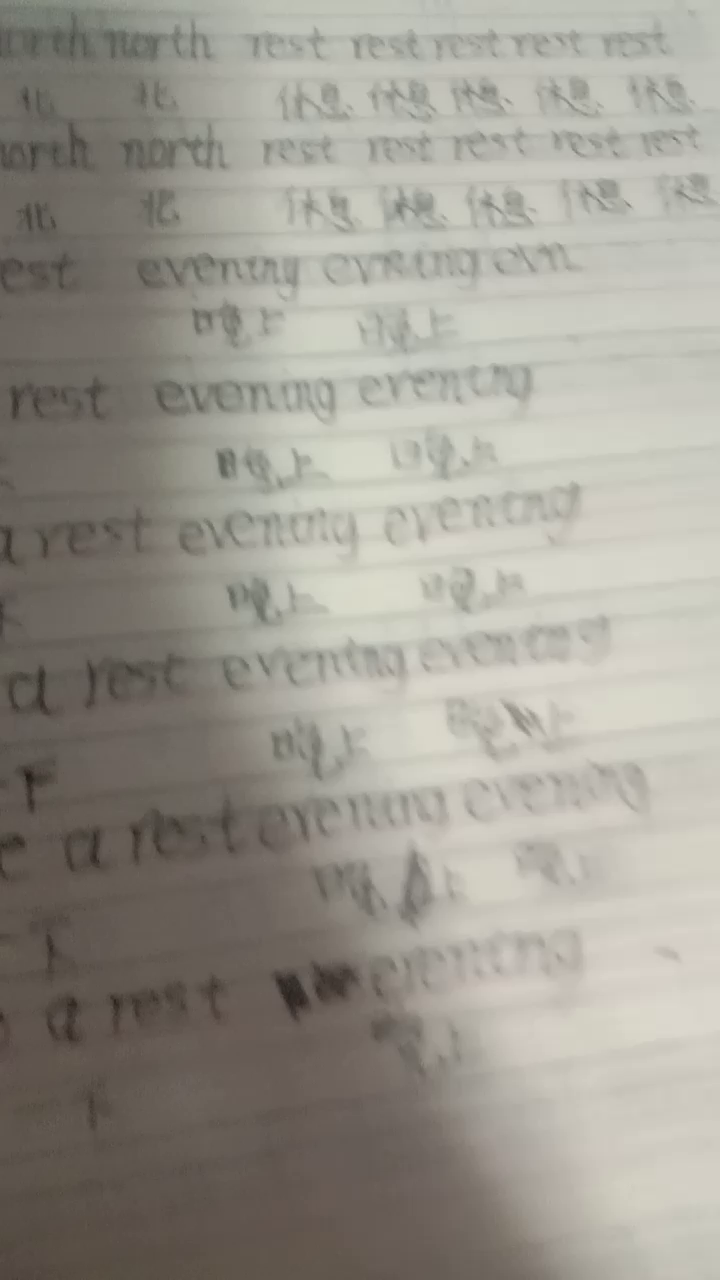 north north rest rest rest rest rest
北 北 休息 休息 休息 休息 休息
north north rest rest rest rest rest
北 北 休息 休息 休息 休息 休息
rest evening evening evn
晚上 晚上
rest evening evening
晚上 晚上
a rest evening evening
晚上 晚上
a rest evening evening
下 晚上 晚上
a rest evening evening
下 晚上 晚上
a rest evening
下 晚上